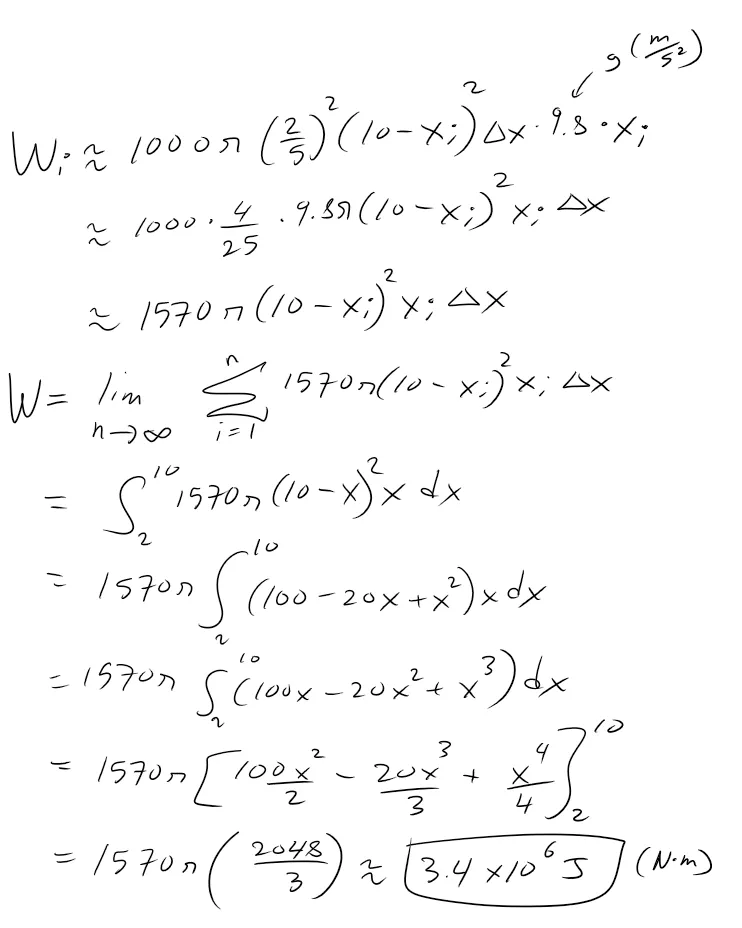 g (m/s²)
Wᵢ ≈ 1000π (2/5)² (10-xᵢ)² Δx · 9.8 · xᵢ
≈ 1000 · 4/25 · 9.8π (10-xᵢ)² xᵢ Δx
≈ 1570π (10-xᵢ)² xᵢ Δx
W = lim n→∞ Σ i=1 n 1570π (10-xᵢ)² xᵢ Δx
= ∫₂¹⁰ 1570π (10-x)² x dx
= 1570π ∫₂¹⁰ (100-20x+x²) x dx
= 1570π ∫₂¹⁰ (100x-20x²+x³) dx
= 1570π [100x²/2 - 20x³/3 + x⁴/4]₂¹⁰
= 1570π (2048/3) ≈ 3.4 × 10⁶ J (N·m)